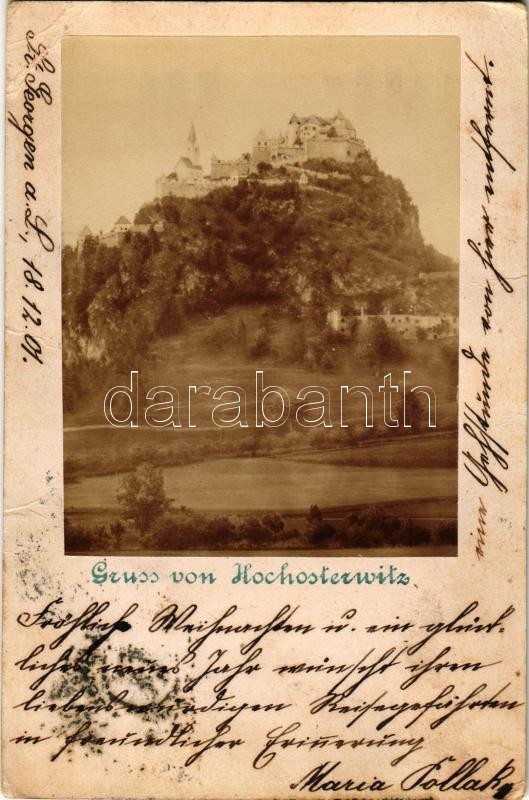 St. Georgen a. L., 18.12.01.
eine Weghstunde von hier entfernt.
darabanth
Gruss von Hochosterwitz
Fröhliche Weihnachten u. ein glück-
liches neues Jahr wünscht ihren
liebenswürdigen Reisegefährten
in freundlicher Erinnerung
Maria Pollak